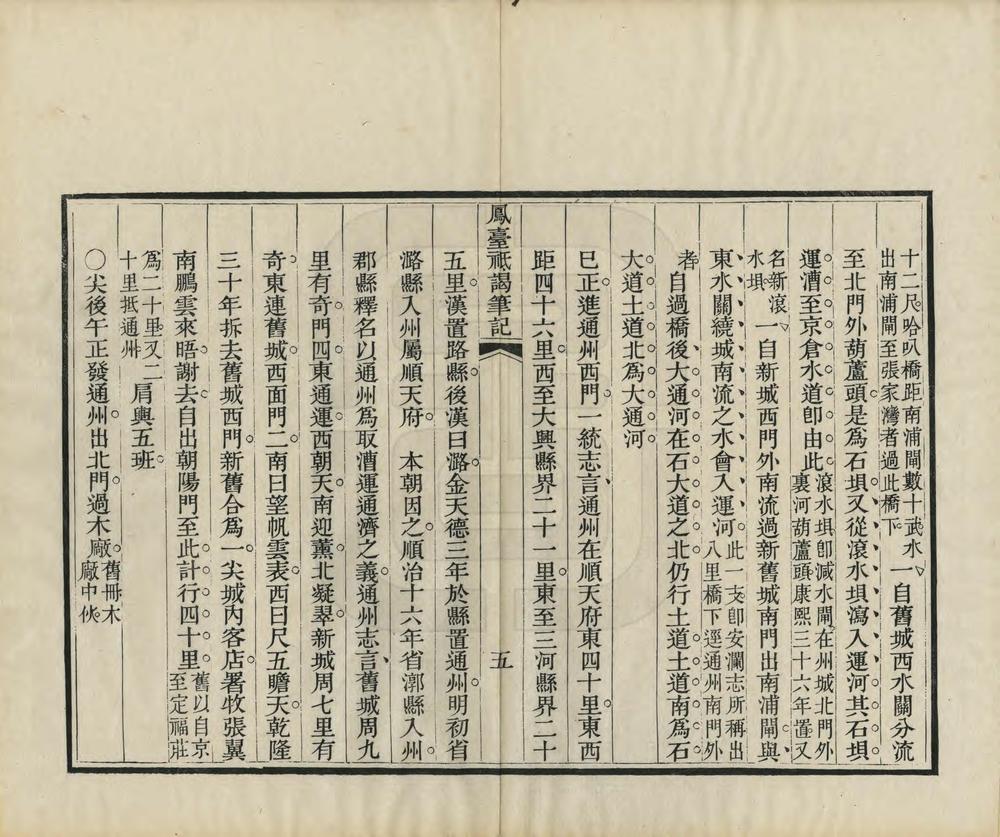 十二尺哈叭橋距南浦閘數十武水
出南浦閘至張家灣者過此橋下
一自舊城西水關分流
至北門外葫蘆頭是爲石埧又從滾水埧瀉入運河其石埧
運漕至京倉水道卽由此
滾水埧卽減水閘在州城北門外
裏河葫蘆頭康熙三十六年置又
名新滾
水埧
一自新城西門外南流過新舊城南門出南浦閘與
東水關繞城南流之水會入運河
此一支卽安瀾志所稱出
八里橋下逕通州南門外
者
自過橋後大通河在石大道之北仍行土道土道南爲石
大道土道北爲大通河
巳正進通州西門一統志言通州在順天府東四十里東西
距四十六里西至大興縣界二十一里東至三河縣界二十
鳳臺祗謁筆記
五
五里漢置路縣後漢曰潞金天德三年於縣置通州明初省
潞縣入州屬順天府 本朝因之順冶十六年省漷縣入州
郡縣釋名以通州爲取漕運通濟之義通州志言舊城周九
里有奇門四東通運西朝天南迎薰北凝翠新城周七里有
奇東連舊城西面門二南曰望帆雲表西曰尺五瞻天乾隆
三十年拆去舊城西門新舊合爲一尖城內客店署牧張翼
南鵬雲來晤謝去自出朝陽門至此計行四十里
舊以自京
至定福莊
爲二十里又二
十里抵通州
肩輿五班
〇尖後午正發通州出北門過木廠
舊冊木
廠中伙